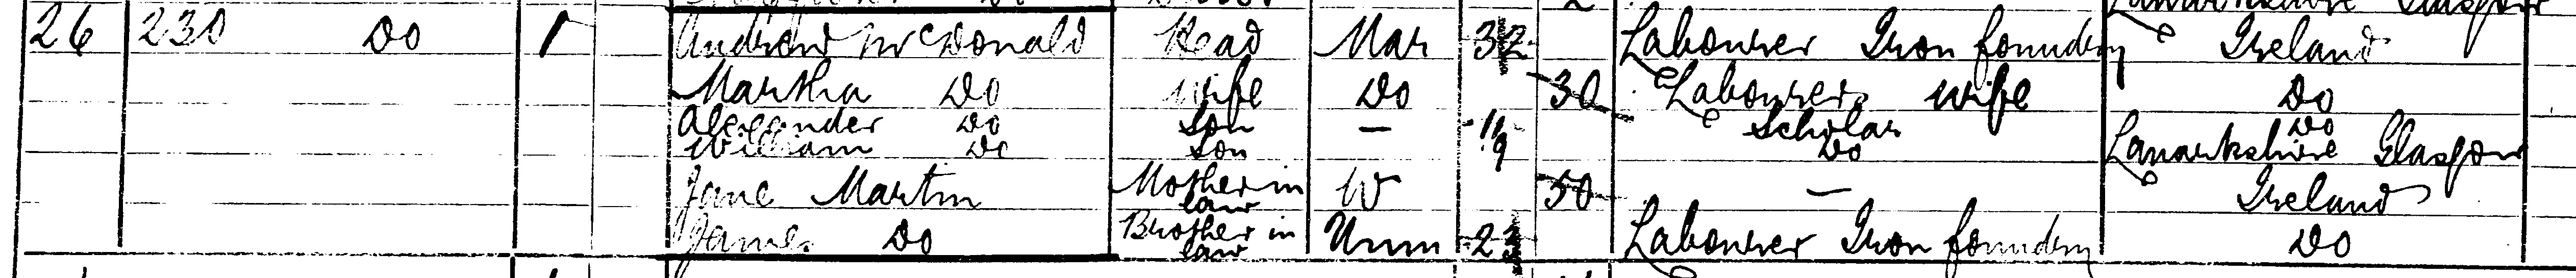 Lanarkshire Glasgow
26 230 Do 1 Andrew McDonald Head Mar 32 Labourer Iron foundry Ireland
Martha Do Wife Do 30 Labourers Wife Do
Alexander Do Son — 11 Scholar Do
William Do Son 9 Do Lanarkshire Glasgow
Jane Martin Mother in law W 50 — Ireland
James Do Brother in law Unm 23 Labourer Iron foundry Do